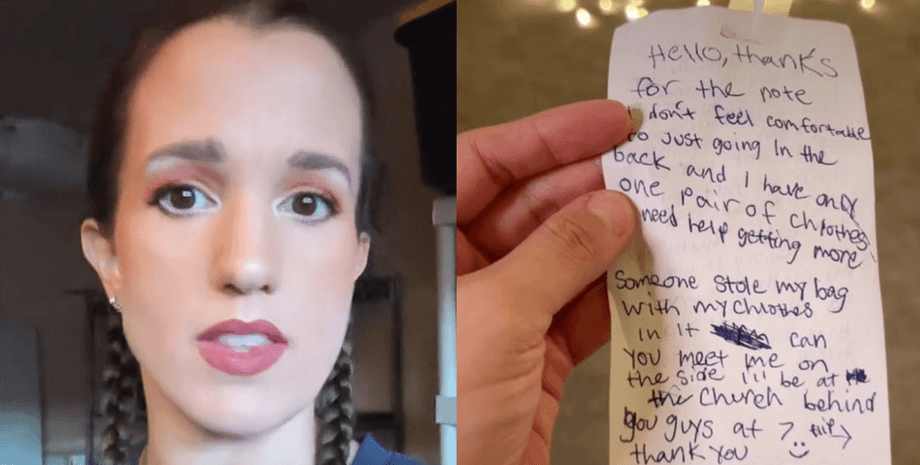 Hello, thanks
for the note
I don't feel comfortable
to just going In the
back and I have only
one pair of Chlothes
need help getting more
Someone stole my bag
with my Chlothes
in it can
you meet me on
the side I'll be at
the Church behind
you guys at 7
thank you